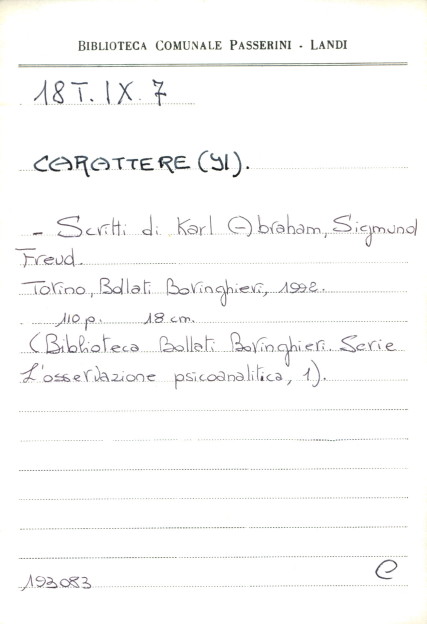 BIBLIOTECA COMUNALE PASSERINI - LANDI
18T. IX. 7
CARATTERE (Il).
- Scritti di Karl Abraham, Sigmund
Freud.
Torino, Bollati Boringhieri, 1992.
110 p. 18 cm.
(Biblioteca Bollati Boringhieri. Serie
L'osservazione psicoanalitica, 1).
193083
e